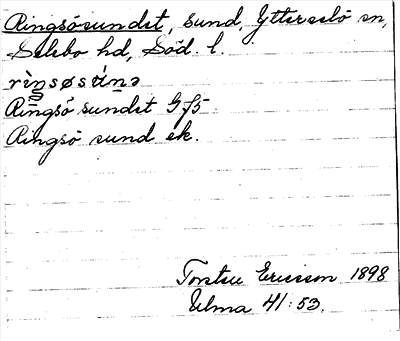 Ringsösundet, sund, Ytterselö sn,
Selebo hd, Söd. l.
rìŋsøsúnə
Ringsö sundet Gf5
Ringsö sund ek.
Torsten Ericsson 1898
Ulma 41:53.